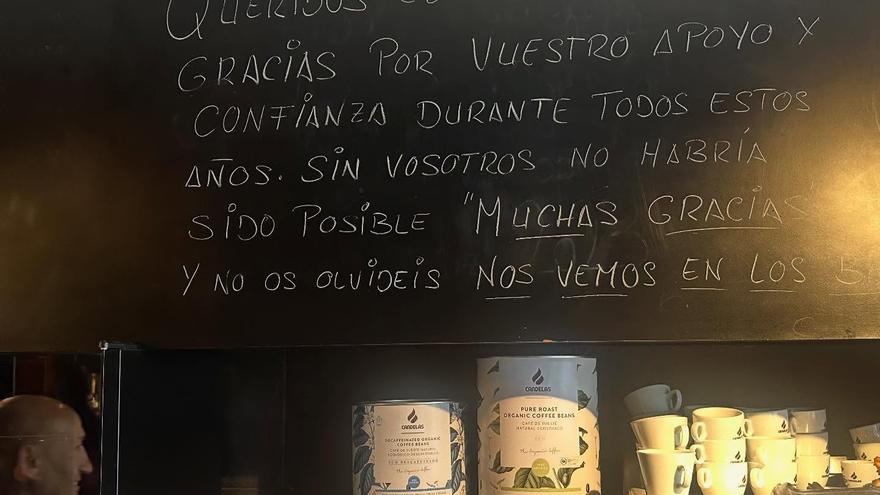 QUERIDOS
GRACIAS POR VUESTRO APOYO Y
CONFIANZA DURANTE TODOS ESTOS
AÑOS. SIN VOSOTROS NO HABRÍA
SIDO POSIBLE "MUCHAS GRACIAS"
Y NO OS OLVIDEIS NOS VEMOS EN LOS
CANDELAS
DECAFFEINATED ORGANIC
COFFEE BEANS
CANDELAS
PURE ROAST
ORGANIC COFFEE BEANS
CAFÉ DE TUESTE
NATURAL ECOLÓGICO